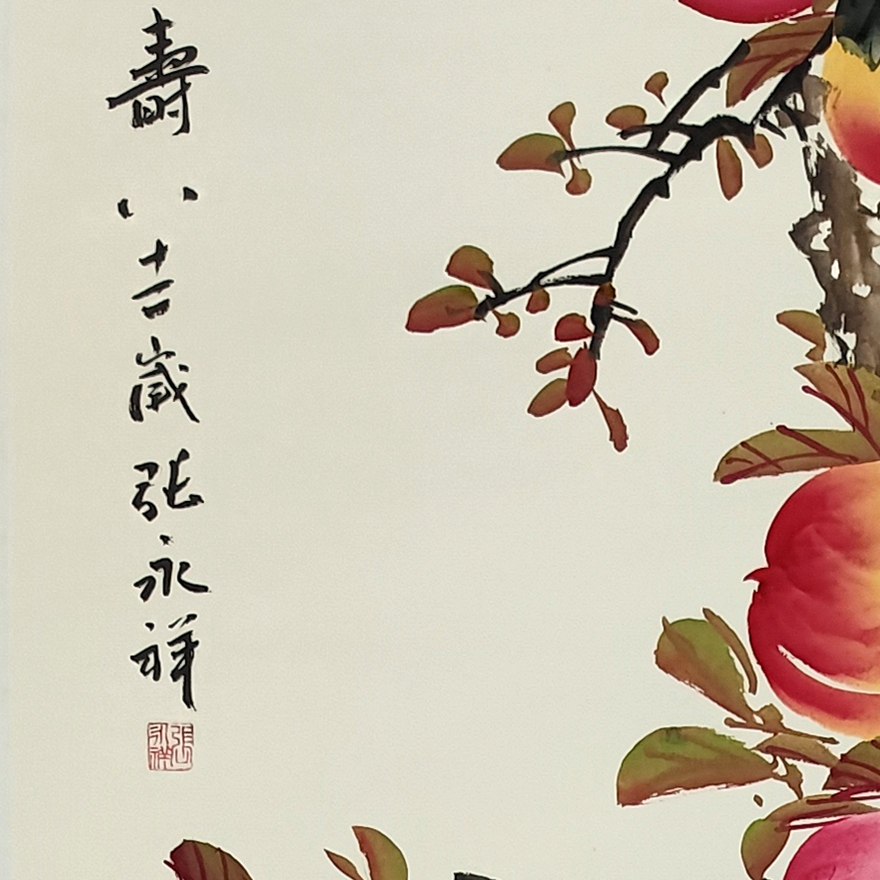 壽八十二歲张永祥
張永祥